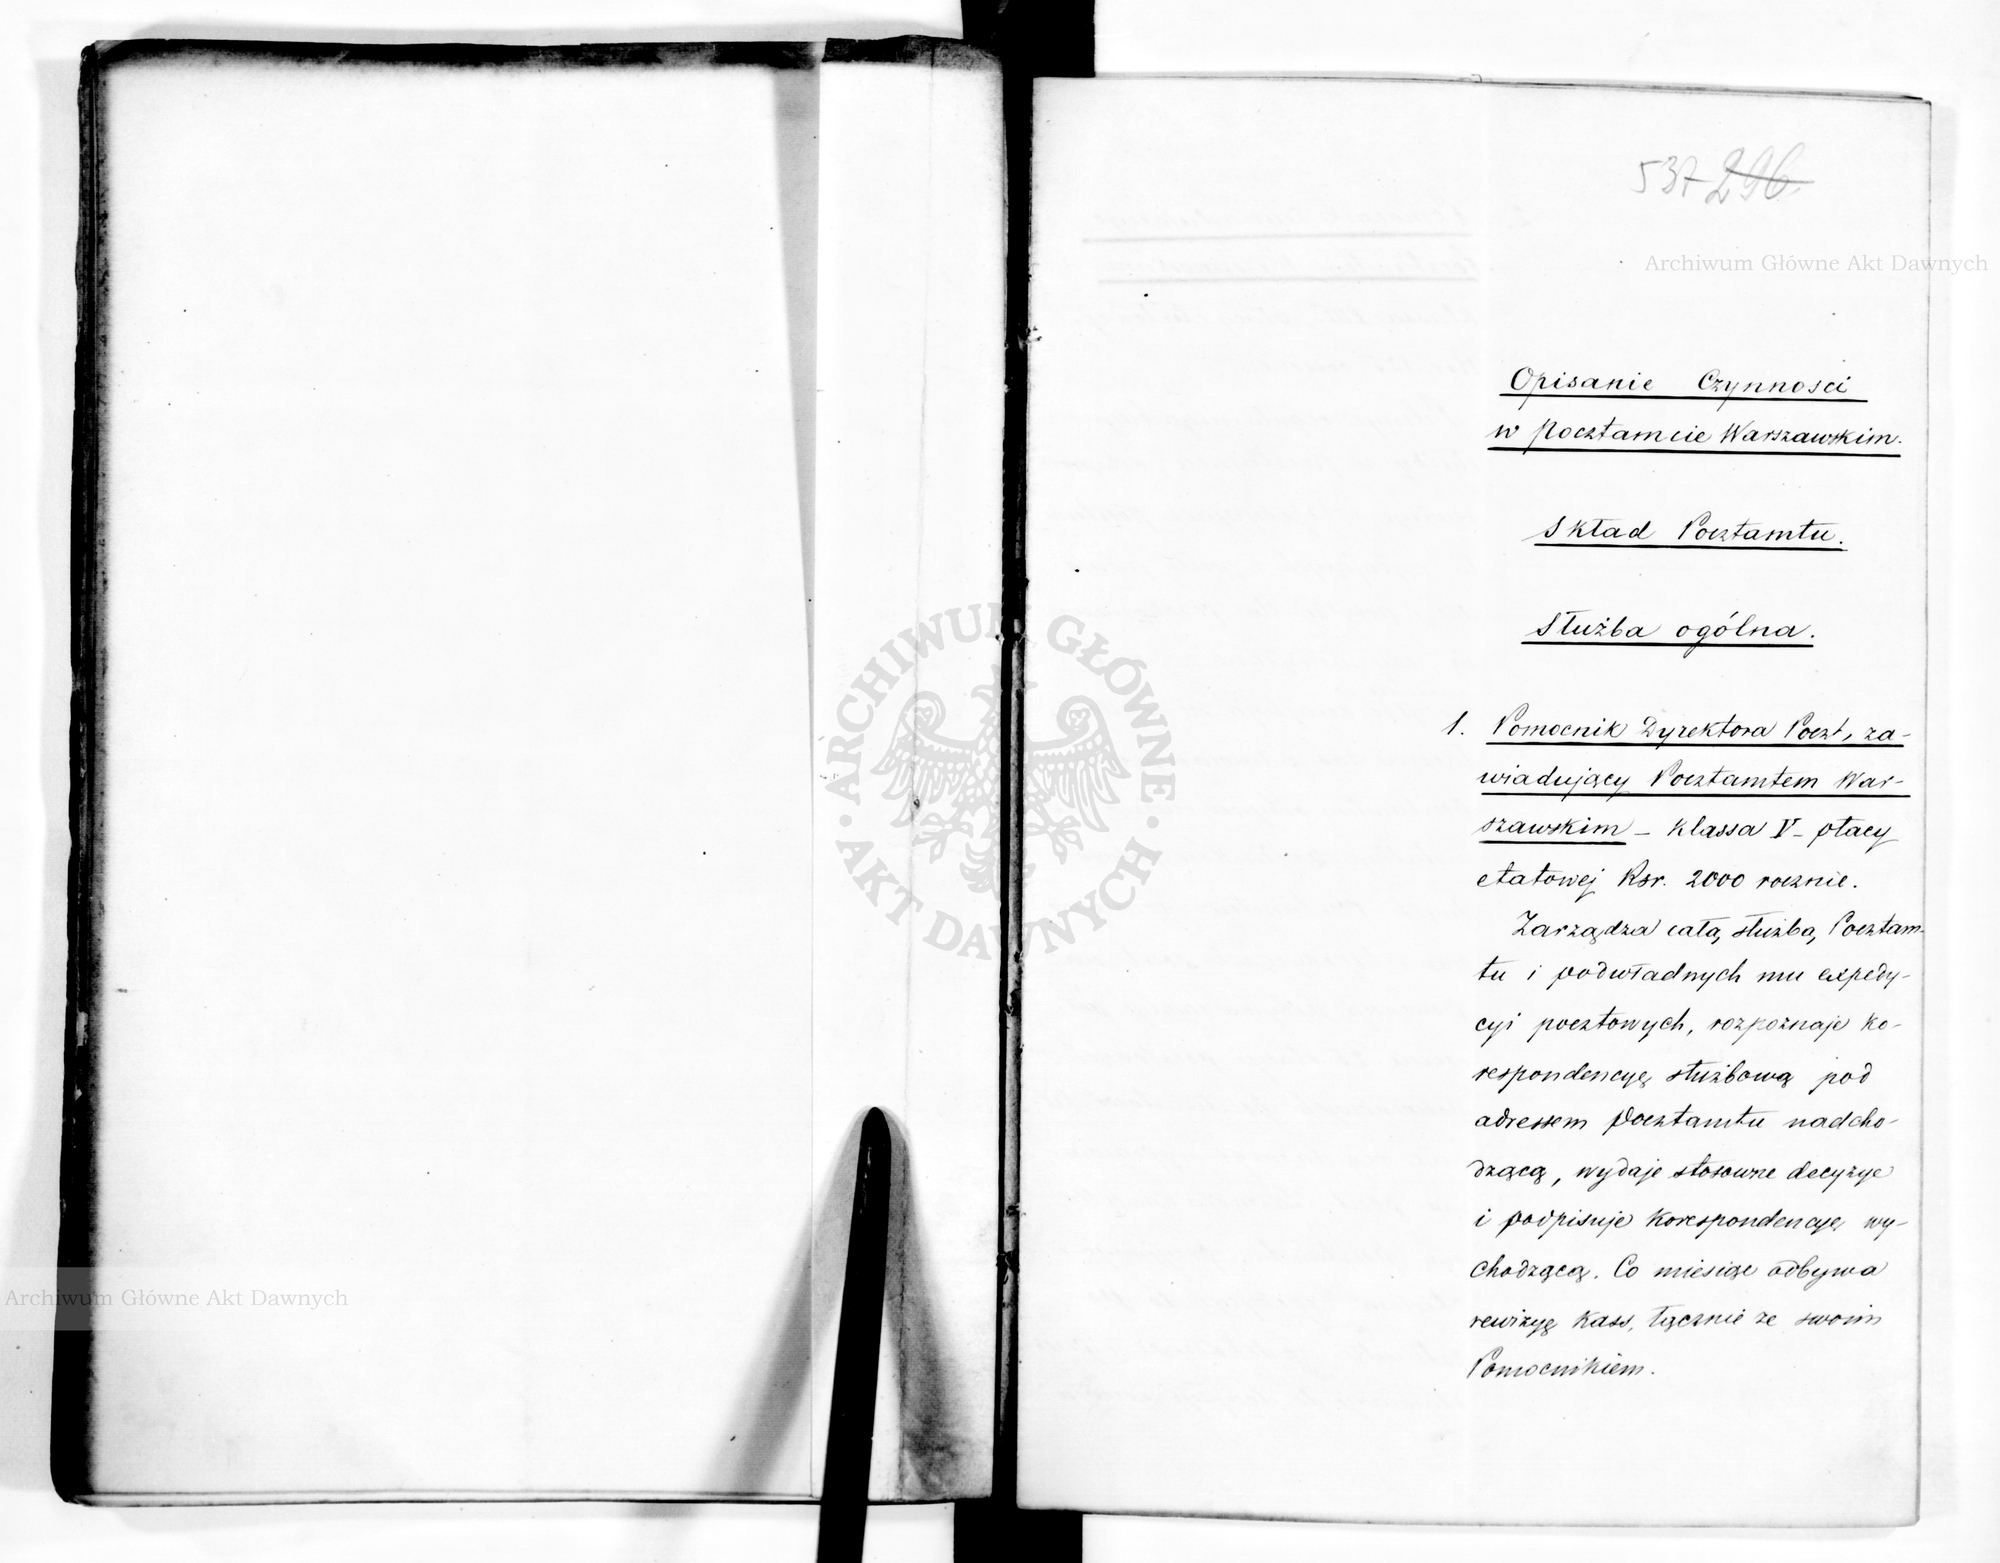 537 296
Archiwum Główne Akt Dawnych
Opisanie Czynnosci
w Pocztamcie Warszawskim.
Skład Pocztamtu.
Służba ogólna.
1. Pomocnik Dyrektora Poczt, za-
wiadujący Pocztamtem War-
szawskim – Klassa V – płacy
etatowej Rsr. 2000 rocznie.
Zarządza całą służbą Pocztam-
tu i podwładnych mu expedy-
cyi pocztowych, rozpoznaje ko-
respondencyę służbową pod
adressem Pocztamtu nadcho-
dzącą, wydaje stosowne decyzye
i podpisuje korespondencyę wy-
chodzącą. Co miesiąc odbywa
rewizyę Kass, łącznie ze swoim
Pomocnikiem.
ARCHIWUM GŁÓWNE
· AKT DAWNYCH ·
Archiwum Główne Akt Dawnych